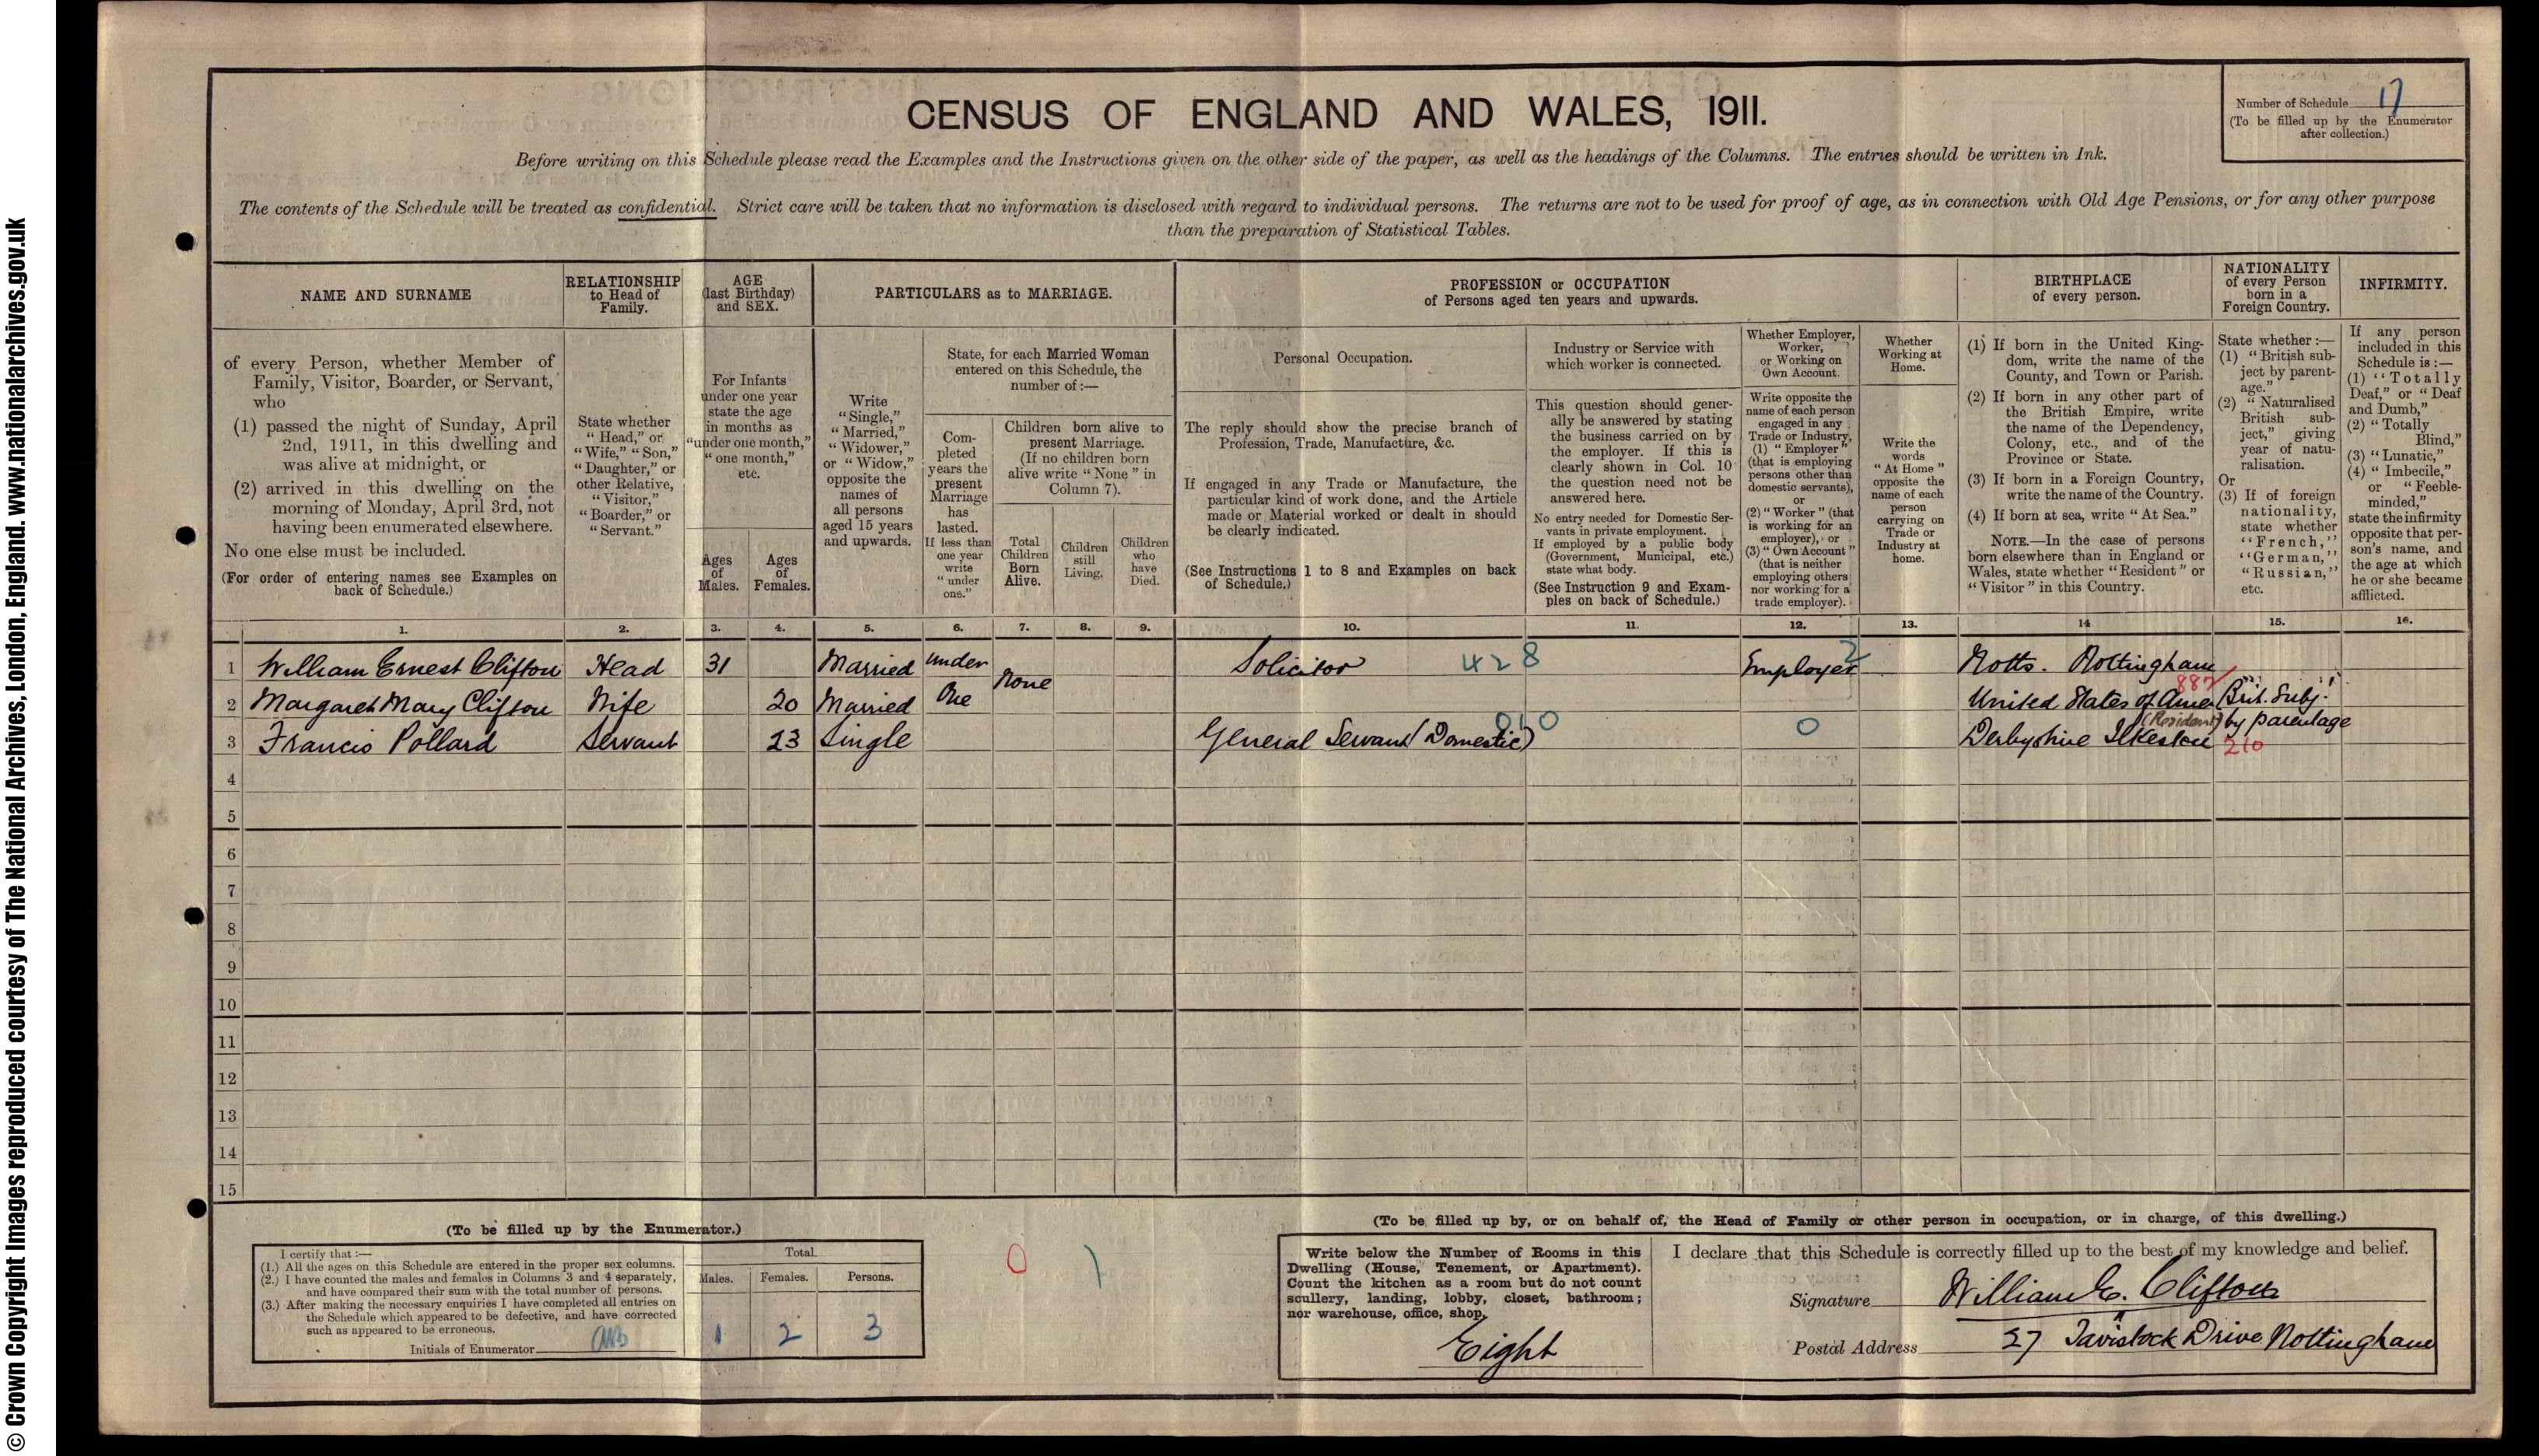 © Crown Copyright Images reproduced courtesy of The National Archives, London, England. www.nationalarchives.gov.uk
CENSUS OF ENGLAND AND WALES, 1911.
Number of Schedule 17
(To be filled up by the Enumerator
after collection.)
Before writing on this Schedule please read the Examples and the Instructions given on the other side of the paper, as well as the headings of the Columns. The entries should be written in Ink.
The contents of the Schedule will be treated as confidential. Strict care will be taken that no information is disclosed with regard to individual persons. The returns are not to be used for proof of age, as in connection with Old Age Pensions, or for any other purpose
than the preparation of Statistical Tables.
NAME AND SURNAME
of every Person, whether Member of
Family, Visitor, Boarder, or Servant,
who
(1) passed the night of Sunday, April
2nd, 1911, in this dwelling and
was alive at midnight, or
(2) arrived in this dwelling on the
morning of Monday, April 3rd, not
having been enumerated elsewhere.
No one else must be included.
(For order of entering names see Examples on
back of Schedule.)
RELATIONSHIP
to Head of
Family.
State whether
"Head," or
"Wife," "Son,"
"Daughter," or
other Relative,
"Visitor,"
"Boarder," or
"Servant."
AGE
(last Birthday)
and SEX.
For Infants
under one year
state the age
in months as
"under one month,"
"one month,"
etc.
Ages
of
Males.
Ages
of
Females.
PARTICULARS as to MARRIAGE.
Write
"Single,"
"Married,"
"Widower,"
or "Widow,"
opposite the
names of
all persons
aged 15 years
and upwards.
State, for each Married Woman
entered on this Schedule, the
number of :—
Com-
pleted
years the
present
Marriage
has
lasted.
If less than
one year
write
"under
one."
Children born alive to
present Marriage.
(If no children born
alive write "None" in
Column 7).
Total
Children
Born
Alive.
Children
still
Living.
Children
who
have
Died.
PROFESSION or OCCUPATION
of Persons aged ten years and upwards.
Personal Occupation.
The reply should show the precise branch of
Profession, Trade, Manufacture, &c.
If engaged in any Trade or Manufacture, the
particular kind of work done, and the Article
made or Material worked or dealt in should
be clearly indicated.
(See Instructions 1 to 8 and Examples on back
of Schedule.)
Industry or Service with
which worker is connected.
This question should gener-
ally be answered by stating
the business carried on by
the employer. If this is
clearly shown in Col. 10
the question need not be
answered here.
No entry needed for Domestic Ser-
vants in private employment.
If employed by a public body
(Government, Municipal, etc.)
state what body.
(See Instruction 9 and Exam-
ples on back of Schedule.)
Whether Employer,
Worker,
or Working on
Own Account.
Write opposite the
name of each person
engaged in any
Trade or Industry,
(1) "Employer"
(that is employing
persons other than
domestic servants),
or
(2) "Worker" (that
is working for an
employer), or
(3) "Own Account"
(that is neither
employing others
nor working for a
trade employer).
Whether
Working at
Home.
Write the
words
"At Home"
opposite the
name of each
person
carrying on
Trade or
Industry at
home.
BIRTHPLACE
of every person.
(1) If born in the United King-
dom, write the name of the
County, and Town or Parish.
(2) If born in any other part of
the British Empire, write
the name of the Dependency,
Colony, etc., and of the
Province or State.
(3) If born in a Foreign Country,
write the name of the Country.
(4) If born at sea, write "At Sea."
NOTE.—In the case of persons
born elsewhere than in England or
Wales, state whether "Resident" or
"Visitor" in this Country.
NATIONALITY
of every Person
born in a
Foreign Country.
State whether :—
(1) "British sub-
ject by parent-
age."
(2) "Naturalised
British sub-
ject," giving
year of natu-
ralisation.
Or
(3) If of foreign
nationality,
state whether
"French,"
"German,"
"Russian,"
etc.
INFIRMITY.
If any person
included in this
Schedule is :—
(1) "Totally
Deaf," or "Deaf
and Dumb,"
(2) "Totally
Blind,"
(3) "Lunatic,"
(4) "Imbecile,"
or "Feeble-
minded,"
state the infirmity
opposite that per-
son's name, and
the age at which
he or she became
afflicted.
1. 2. 3. 4. 5. 6. 7. 8. 9. 10. 11. 12. 13. 14 15. 16.
1 William Ernest Clifton Head 31 Married under None Solicitor 428 Employer 2 Notts. Nottingham
2 Margaret Mary Clifton Wife 20 Married One United States of Amer (Resident) 887 Brit. Subj. by parentage
3 Francis Pollard Servant 23 Single General Servant (Domestic) 050 0 Derbyshire Ilkeston 210
4
5
6
7
8
9
10
11
12
13
14
15
(To be filled up by the Enumerator.)
I certify that :—
(1.) All the ages on this Schedule are entered in the proper sex columns.
(2.) I have counted the males and females in Columns 3 and 4 separately,
and have compared their sum with the total number of persons.
(3.) After making the necessary enquiries I have completed all entries on
the Schedule which appeared to be defective, and have corrected
such as appeared to be erroneous.
Initials of Enumerator
Total.
Males. Females. Persons.
1 2 3
0 1
(To be filled up by, or on behalf of, the Head of Family or other person in occupation, or in charge, of this dwelling.)
Write below the Number of Rooms in this
Dwelling (House, Tenement, or Apartment).
Count the kitchen as a room but do not count
scullery, landing, lobby, closet, bathroom;
nor warehouse, office, shop.
Eight
I declare that this Schedule is correctly filled up to the best of my knowledge and belief.
Signature William E. Clifton
Postal Address 27 Tavistock Drive Nottingham